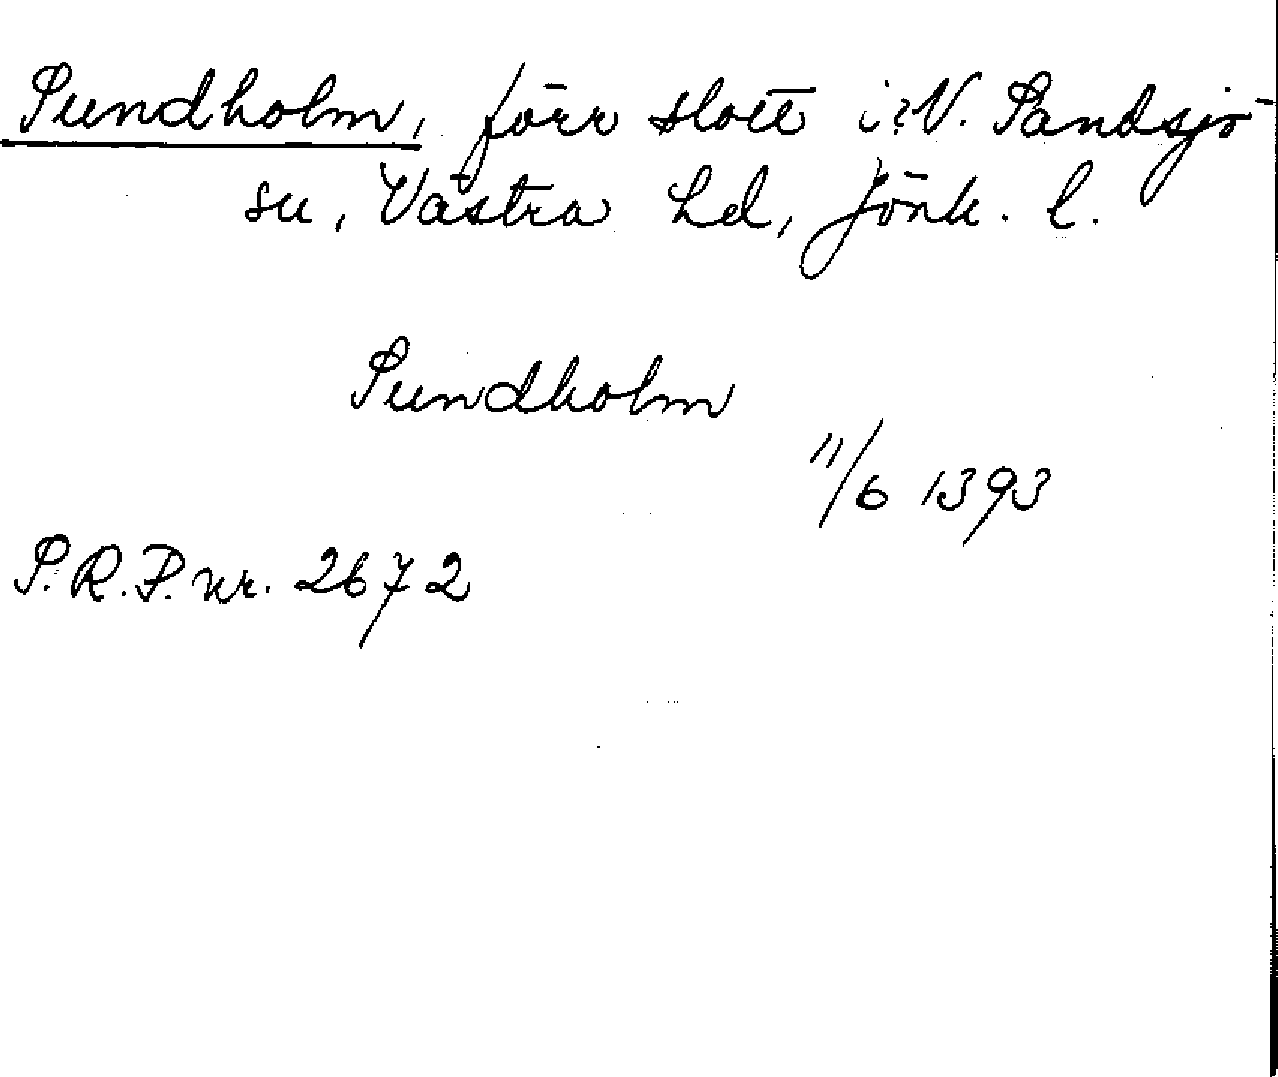 Sundholm, förr slott i ?N. Sandsjö
sn, Västra hd, Jönk. l.
Sundholm
11/6 1393
S.R.P. nr. 2672